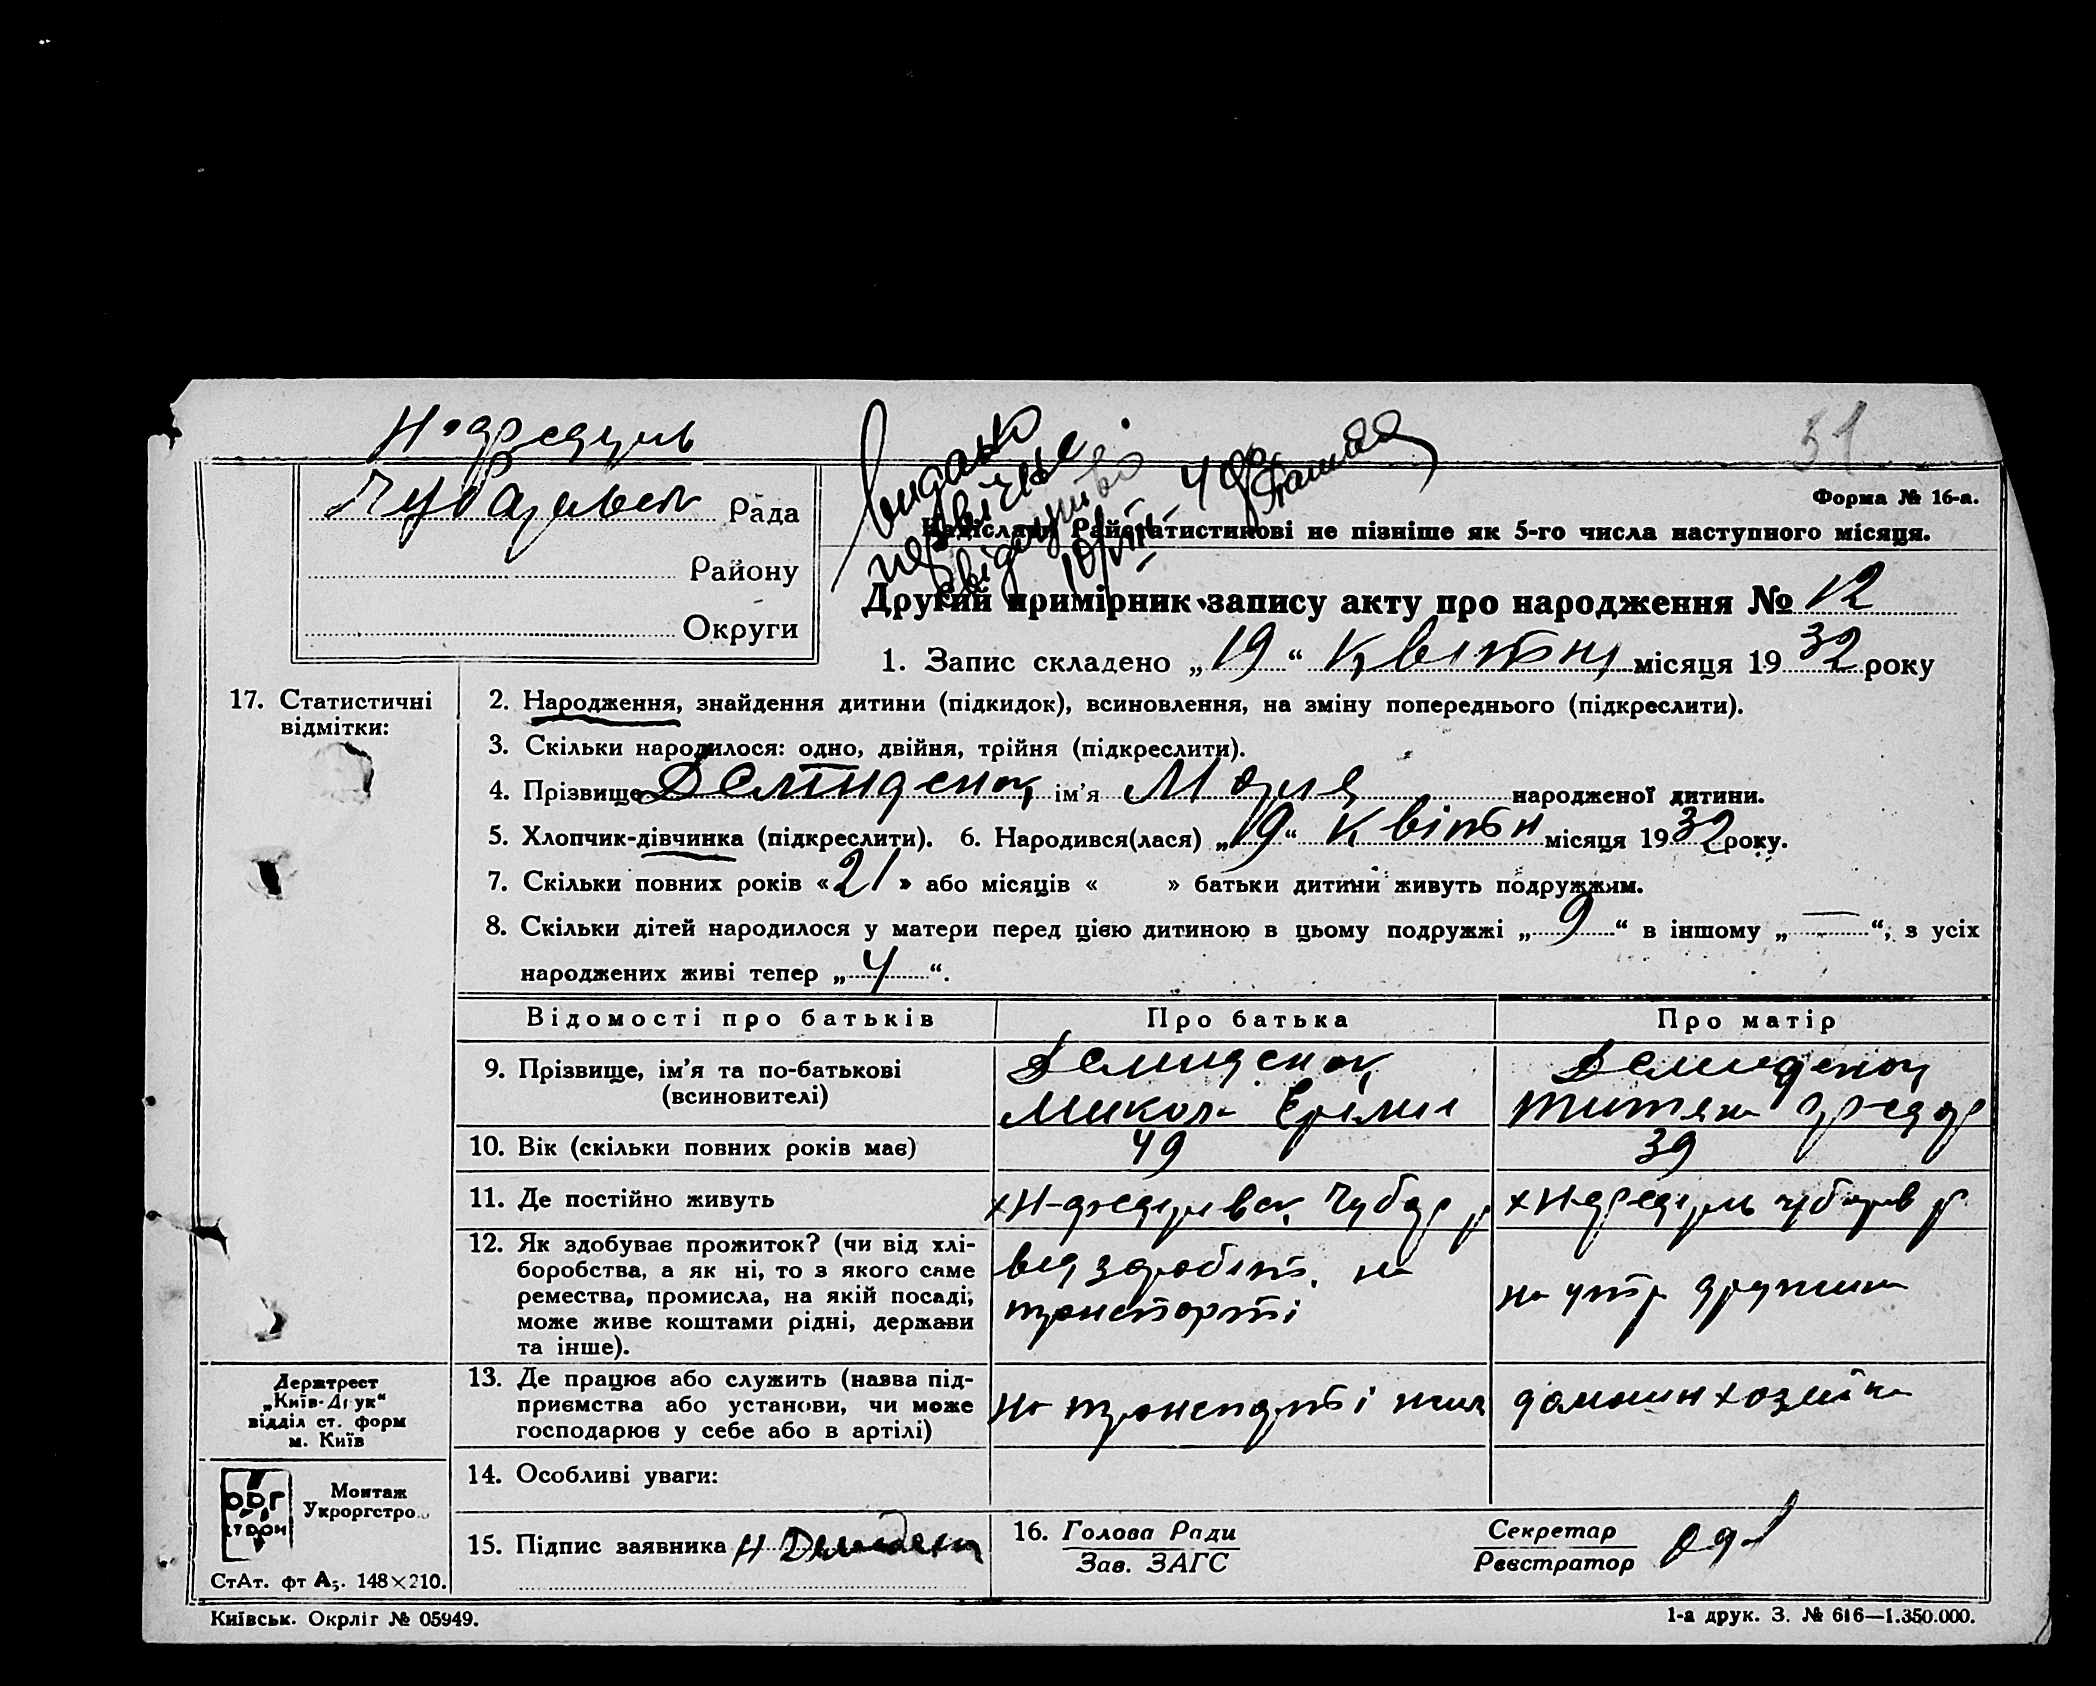 51
Рада
Району
Округи
видано
первічне
свідоцтво
10/VIII
Форма № 16-а.
Надіслати Райстатистикові не пізніше як 5-го числа наступного місяця.
Другий примірник запису акту про народження № 12
1. Запис складено „19“ Квітня місяця 1932 року
17. Статистичні
відмітки:
2. Народження, знайдення дитини (підкидок), всиновлення, на зміну попереднього (підкреслити).
3. Скільки народилося: одно, двійня, трійня (підкреслити).
4. Прізвище Демиденок ім’я Марія народженої дитини.
5. Хлопчик-дівчинка (підкреслити). 6. Народився(лася) „19“ Квітн місяця 1932 року.
7. Скільки повних років «21» або місяців « » батьки дитини живуть подружжям.
8. Скільки дітей народилося у матери перед цією дитиною в цьому подружжі „9“ в іншому „—“, з усіх
народжених живі тепер „4“.
Відомості про батьків
Про батька
Про матір
9. Прізвище, ім’я та по-батькові
(всиновителі)
Демиденок
Микола
Демиденок
10. Вік (скільки повних років має)
49
39
11. Де постійно живуть
12. Як здобуває прожиток? (чи від хлі-
боробства, а як ні, то з якого саме
ремества, промисла, на якій посаді,
може живе коштами рідні, держави
та інше).
від заробітк. на
транспорті
на утр дружина
13. Де працює або служить (назва під-
приємства або установи, чи може
господарює у себе або в артілі)
на транспорті
домашн хозяйка
14. Особливі уваги:
15. Підпис заявника Н Демиденок
16. Голова Ради
Зав. ЗАГС
Секретар
Реєстратор
Держтрест
„Київ-Друк“
відділ ст. форм
м. Київ
ОРГ
СТРОЙ
Монтаж
Укроргстро
СтАт. фт А5. 148×210.
Київськ. Окрліт № 05949.
1-а друк. З. № 616—1.350.000.